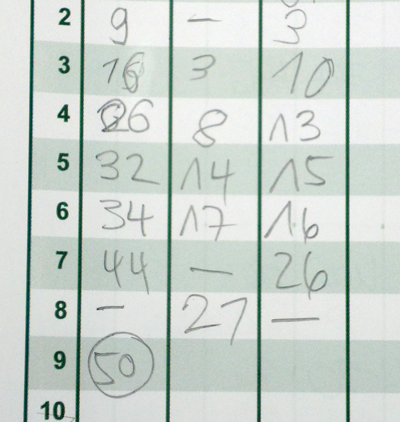 2 9 — 3
3 16 3 10
4 26 8 13
5 32 14 15
6 34 17 16
7 44 — 26
8 — 27 —
9 50
10